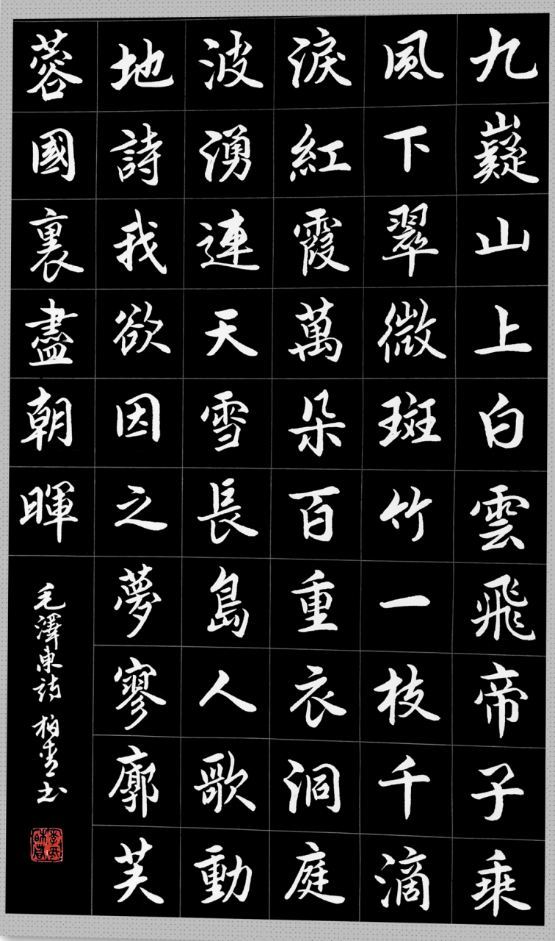 九嶷山上白雲飛帝子乘
風下翠微斑竹一枝千滴
淚紅霞萬朵百重衣洞庭
波湧連天雪長島人歌動
地詩我欲因之夢寥廓芙
蓉國裏盡朝暉
毛澤東詩 柏青书